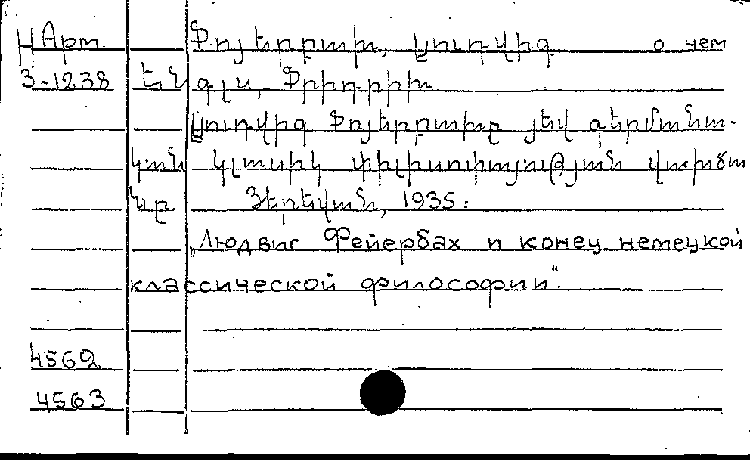 НАрт Ֆոյերբախ, Լյուդվիգ о нем
3-1238 Ենգլս, Ֆրիդրիխ
Լյուդվիգ Ֆոյերբախը յեվ գերմանա-
կան կլասիկ փիլիսոփայության վախճա
նը Յերեվան, 1935:
„Людвиг Фейербах и конец немецкой
классической философии"
4562
4563